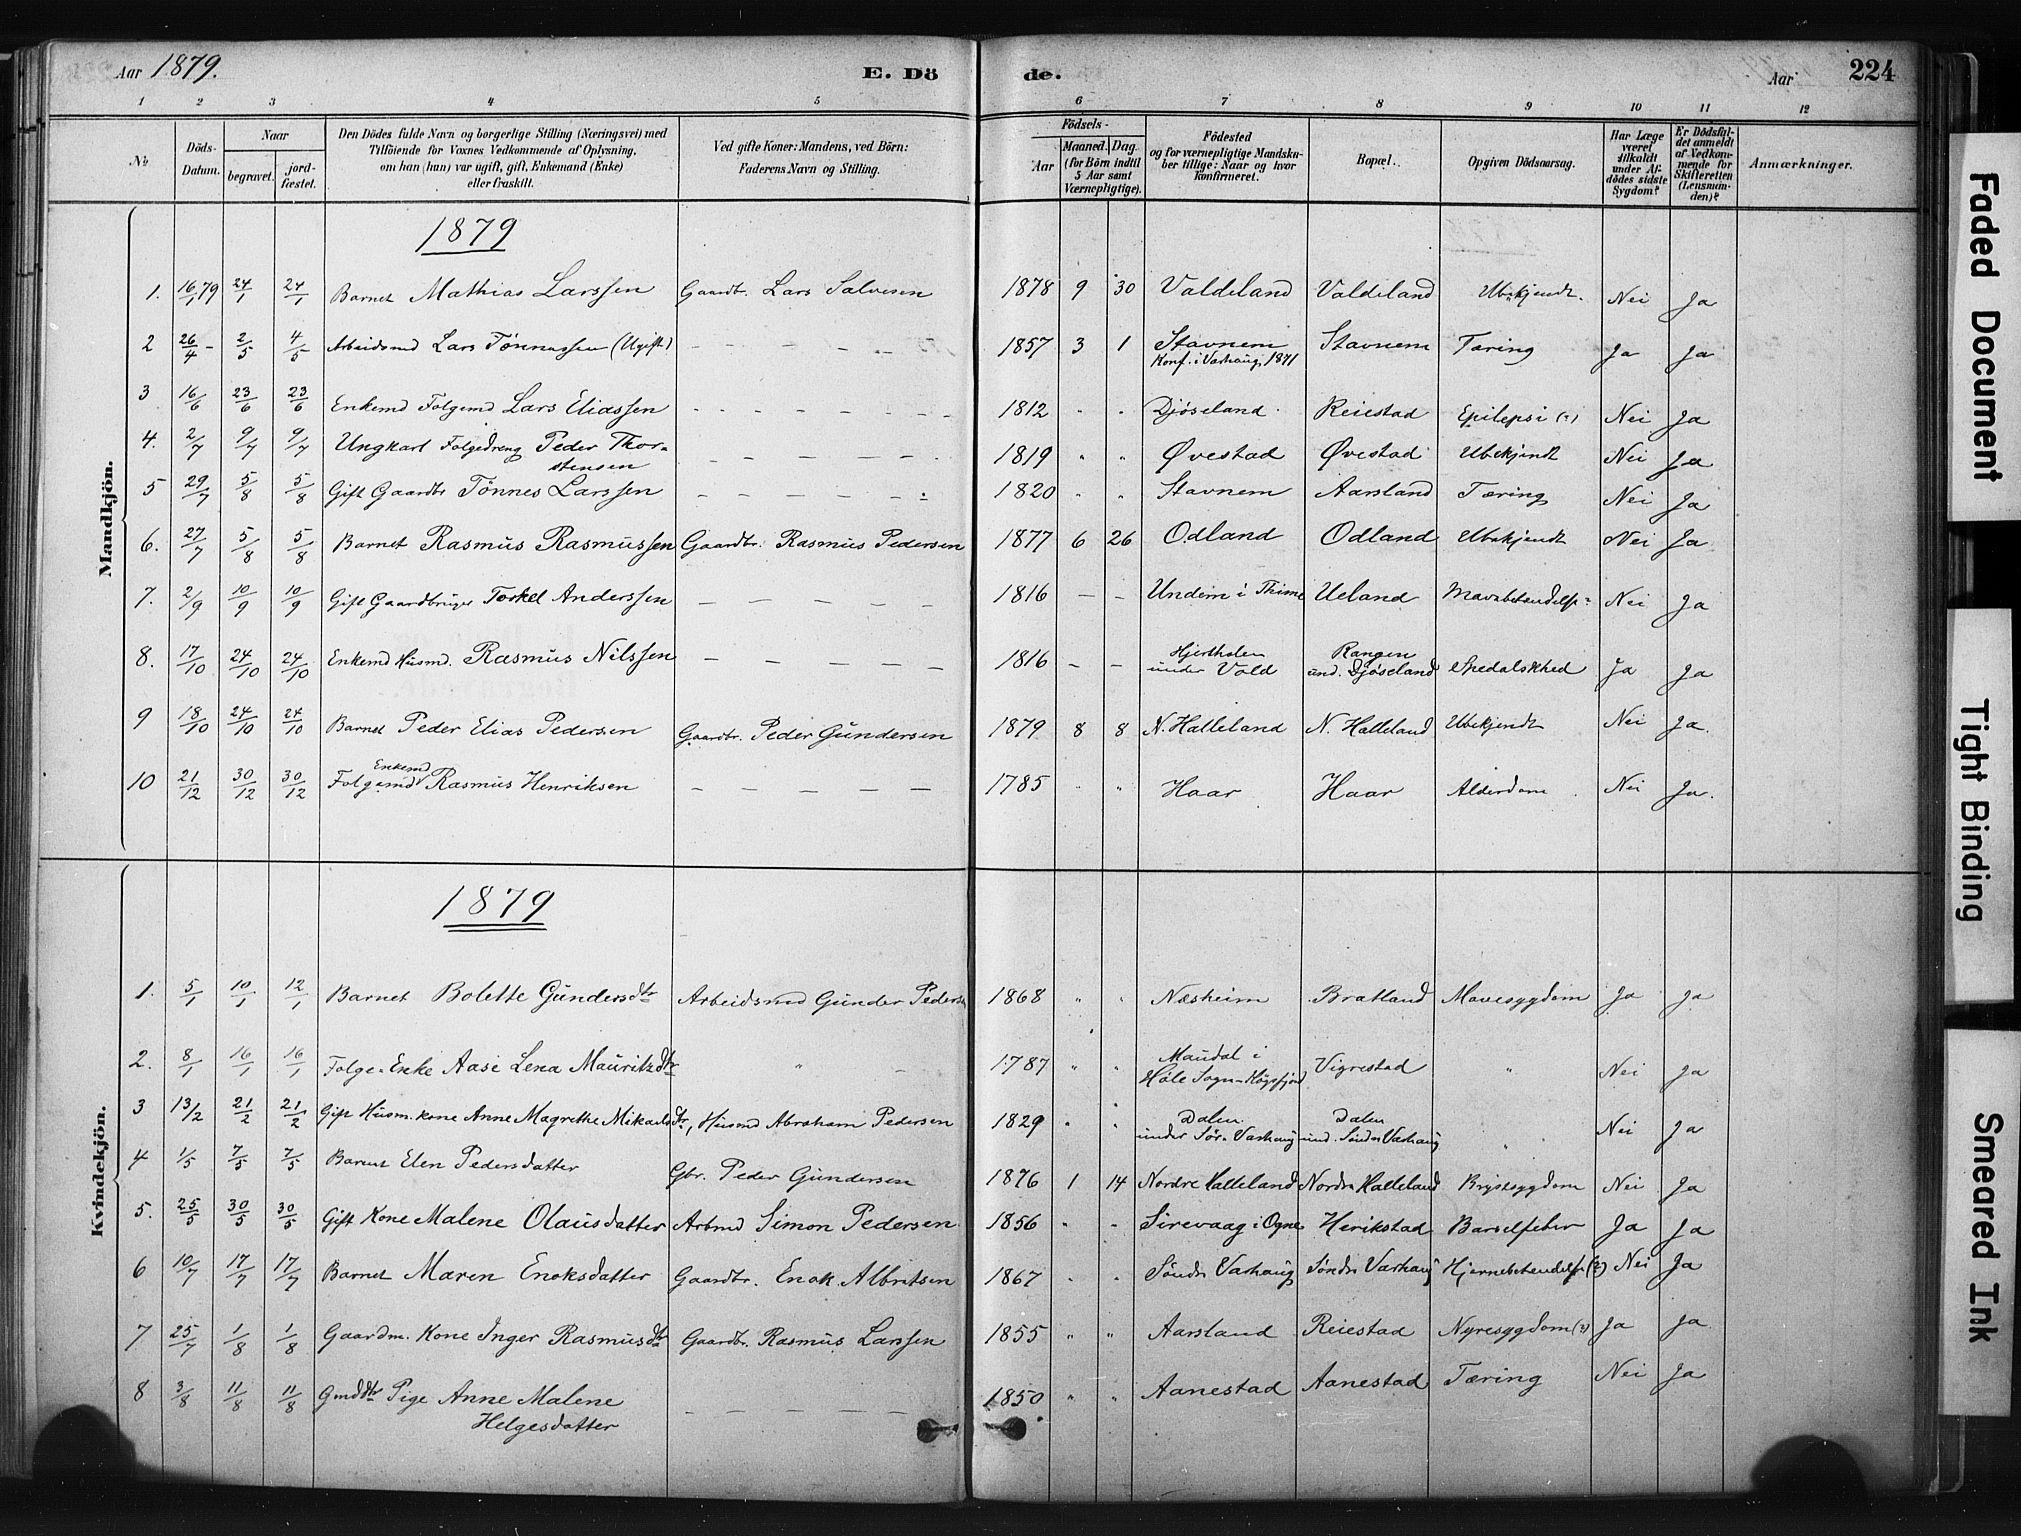 Aar 1879.
E. Dö de.
Aar 224
1 2 3 4 5 6 7 8 9 10 11 12
No
Döds-Datum.
Naar
begravet.
jord-fæstet.
Den Dödes fulde Navn og borgerlige Stilling (Næringsvei) med
Tilföiende for Voxnes Vedkommende af Oplysning,
om han (hun) var ugift, gift, Enkemand (Enke)
eller fraskilt.
Ved gifte Koner: Mandens, ved Börn:
Faderens Navn og Stilling.
Födsels-
Aar
Maaned. Dag
(for Börn indtil
5 Aar samt
Værnepligtige).
Födested
og for værnepligtige Mandskaber tillige: Naar og hvor
konfirmeret.
Bopæl.
Opgiven Dödsaarsag.
Har Læge
været
tilkaldt
under Afdödes sidste
Sygdom?
Er Dödsfaldet anmeldt
af Vedkommende for
Skifteretten
(Lensmanden)?
Anmærkninger.
Mandkjön.
1879
1. 16/1 79 24/1 24/1 Barnet Mathias Larssen Gaardbr. Lars Salvesen 1878 9 30 Valdeland Valdeland Ubekjendt. Nei Ja
2 26/4 - 2/5 4/5 Arbeidsmd Lars Tönnessen (Ugift) - - - - - 1857 3 1 Stavnem Stavnem Tæring Ja Ja
Konf. i Varhaug 1871
3 16/6 23/6 23/6 Enkemd Folgemd Lars Eliassen - - - - - 1812 " " Djöseland. Reiestad Epilepsi (?) Nei Ja
4. 2/7 9/7 9/7 Ungkarl Folgedreng Peder Thor- - - - - - 1819 " " Øvestad Øvestad Ubekjendt Nei Ja
stensen
5 29/7 5/8 5/8 Gift Gaardbr Tönnes Larssen - - - - - 1820 " " Stavnem Aarsland Tæring Nei Ja
6. 27/7 5/8 5/8 Barnet Rasmus Rasmussen Gaardbr. Rasmus Pedersen 1877 6 26 Odland Odland Ubekjendt Nei Ja
7. 2/9 10/9 10/9 Gift Gaardbruger Torkel Anderssen - - - - - 1816 - - Undem i Thime Ueland Mavebetendelse Nei Ja
8. 17/10 24/10 24/10 Enkemd Husmd. Rasmus Nilssen - - - - - 1816 - - Hjertholen under Vold Rangen und. Djöseland Spedalskhed Ja Ja
9 18/10 24/10 24/10 Barnet Peder Elias Pedersen Gaardbr. Peder Gundersen 1879 8 8 N. Halleland N. Halleland Ubekjendt Nei Ja.
10 21/12 30/12 30/12 Folgemd Enkemd Rasmus Henriksen - - - - - 1785 " " Haar Haar Alderdom Nei Ja.
Kvindekjön.
1879
1. 5/1 10/1 12/1 Barnet Bolette Gundersdtr Arbeidsmd Gunder Peders 1868 " " Næsheim Bratland Mavesygdom Ja Ja
2. 8/1 16/1 16/1 Folge-Enke Aase Lena Mauritzdtr " - 1787 " " Maudal i Höle Sogn-Högsfjord Vigrestad " Nei Ja
3 13/2 21/2 21/2 Gift Husm.kone Anne Magrethe Mikaelsdtr, Husmd Abraham Pedersen 1829 " " Dalen under Sör-Varhaug Dalen und. Söndr Varhaug " Nei Ja
4 1/5 7/5 7/5 Barnet Elen Pedersdatter Gbr. Peder Gundersen 1876 1 14 Nordre Halleland Nordre Halleland Brystsygdom Nei Ja
5. 25/5 30/5 30/5 Gift Kone Malene Olausdatter Arbmd Simon Pedersen 1856 " " Sirevaag i Ogne Herikstad Barselfeber Ja Ja
6 10/7 17/7 17/7 Barnet Maren Enoksdatter Gaardbr. Enok Albritsen 1867 " " Söndr Varhaug Söndr Varhaug Hjernebetendelse (?) Nei Ja
7 25/7 1/8 1/8 Gaardm. Kone Inger Rasmusdtr Gaardbr. Rasmus Larssen 1855 " " Aarsland Reiestad Nyresygdom (?) Ja Ja.
8 3/8 11/8 11/8 Gmddtr Pige Anne Malene - - - - - 1850 " " Aanestad Aanestad Tæring Nei Ja
Helgesdatter
Faded Document
Tight Binding
Smeared Ink